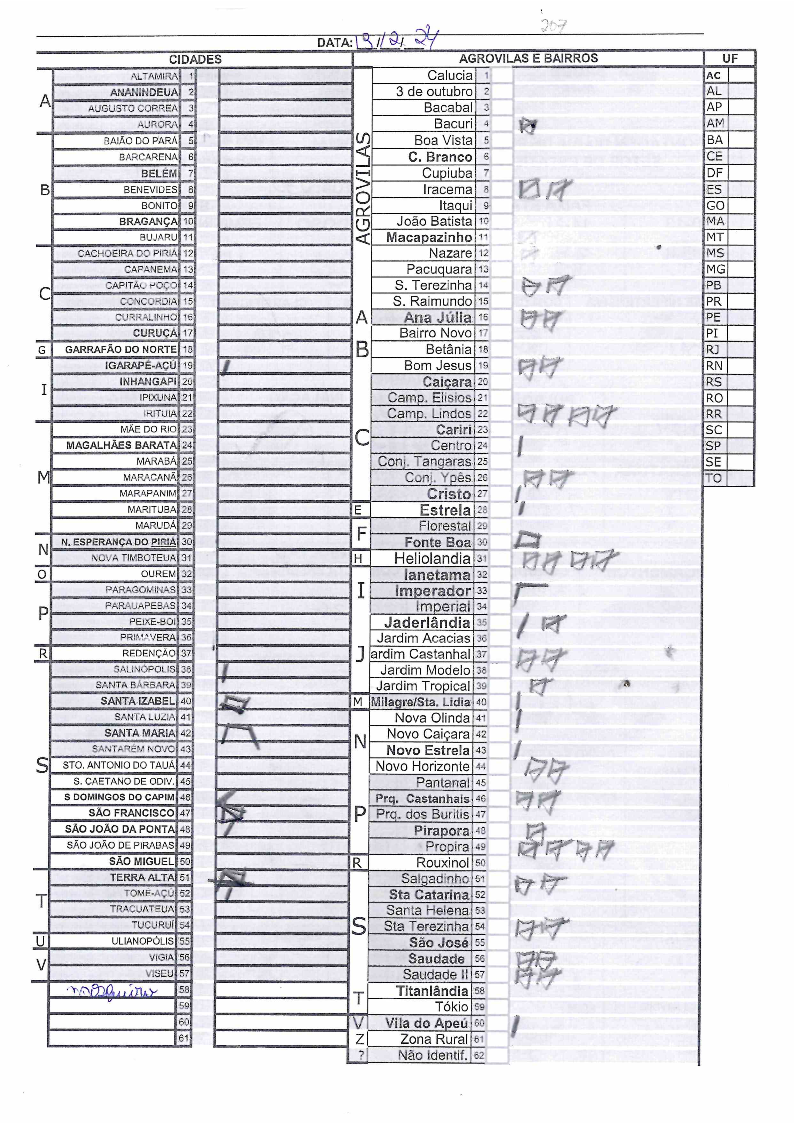 207
DATA: 19/2/24
CIDADES AGROVILAS E BAIRROS UF
A
ALTAMIRA 1
ANANINDEUA 2
AUGUSTO CORREA 3
AURORA 4
B
BAIÃO DO PARÁ 5
BARCARENA 6
BELÉM 7
BENEVIDES 8
BONITO 9
BRAGANÇA 10
BUJARU 11
C
CACHOEIRA DO PIRIA 12
CAPANEMA 13
CAPITÃO POÇO 14
CONCORDIA 15
CURRALINHO 16
CURUÇA 17
G GARRAFÃO DO NORTE 18
I
IGARAPÉ-AÇÚ 19
INHANGAPI 20
IPIXUNA 21
IRITUIA 22
M
MÃE DO RIO 23
MAGALHÃES BARATA 24
MARABÁ 25
MARACANÃ 26
MARAPANIM 27
MARITUBA 28
MARUDÁ 29
N
N. ESPERANÇA DO PIRIA 30
NOVA TIMBOTEUA 31
O OUREM 32
P
PARAGOMINAS 33
PARAUAPEBAS 34
PEIXE-BOI 35
PRIMAVERA 36
R REDENÇÃO 37
S
SALINÓPOLIS 38
SANTA BÁRBARA 39
SANTA IZABEL 40
SANTA LUZIA 41
SANTA MARIA 42
SANTARÉM NOVO 43
STO. ANTONIO DO TAUÁ 44
S. CAETANO DE ODIV. 45
S DOMINGOS DO CAPIM 46
SÃO FRANCISCO 47
SÃO JOÃO DA PONTA 48
SÃO JOÃO DE PIRABAS 49
SÃO MIGUEL 50
T
TERRA ALTA 51
TOMÉ-AÇÚ 52
TRACUATEUA 53
TUCURUÍ 54
U ULIANOPÓLIS 55
V
VIGIA 56
VISEU 57
58
59
60
61
AGROVILAS
Calucia 1
3 de outubro 2
Bacabal 3
Bacuri 4
Boa Vista 5
C. Branco 6
Cupiuba 7
Iracema 8
Itaqui 9
João Batista 10
Macapazinho 11
Nazare 12
Pacuquara 13
S. Terezinha 14
S. Raimundo 15
A Ana Júlia 16
B
Bairro Novo 17
Betânia 18
Bom Jesus 19
C
Caiçara 20
Camp. Elisios 21
Camp. Lindos 22
Cariri 23
Centro 24
Conj. Tangaras 25
Conj. Ypês 26
Cristo 27
E Estrela 28
F
Florestal 29
Fonte Boa 30
H Heliolandia 31
I
Ianetama 32
Imperador 33
Imperial 34
J
Jaderlândia 35
Jardim Acacias 36
Jardim Castanhal 37
Jardim Modelo 38
Jardim Tropical 39
M Milagre/Sta. Lidia 40
N
Nova Olinda 41
Novo Caiçara 42
Novo Estrela 43
Novo Horizonte 44
P
Pantanal 45
Prq. Castanhais 46
Prq. dos Buritis 47
Pirapora 48
Propira 49
R Rouxinol 50
S
Salgadinho 51
Sta Catarina 52
Santa Helena 53
Sta Terezinha 54
São José 55
Saudade 56
Saudade II 57
T
Titanlândia 58
Tókio 59
V Vila do Apeú 60
Z Zona Rural 61
? Não Identif. 62
AC
AL
AP
AM
BA
CE
DF
ES
GO
MA
MT
MS
MG
PB
PR
PE
PI
RJ
RN
RS
RO
RR
SC
SP
SE
TO